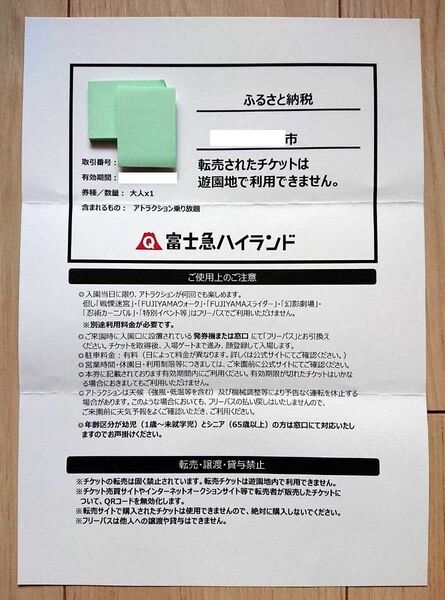 ふるさと納税
市
取引番号：
有効期間：
券種／数量： 大人x1
含まれるもの： アトラクション乗り放題
転売されたチケットは
遊園地で利用できません。
Q 富士急ハイランド
ご使用上のご注意
◎入園当日に限り、アトラクションが何回でも楽しめます。
但し「戦慄迷宮」・「FUJIYAMAウォーク」・「FUJIYAMAスライダー」・「幻影劇場」・
「忍術カーニバル」・「特別イベント等」はフリーパスでご利用いただけません。
※別途利用料金が必要です。
◎ご来園時に入園口に設置されている発券機または窓口にて「フリーパス」とお引換え
ください。チケット取得後、入場ゲートまで進み、顔登録して入場します。
◎駐車料金：有料（日によって料金が異なります。詳しくは公式サイトにてご確認ください。）
◎営業時間・休園日・利用制限等につきましては、ご来園前に公式サイトにてご確認ください。
◎本券に記載されております有効期間内にご利用ください。有効期限が切れたチケットはいかな
る場合におきましてもご利用いただけません。
◎アトラクションは天候（強風・低温等を含む）及び機械調整等により予告なく運転を休止する
場合があります。このような場合においても、フリーパスの払い戻しはいたしませんので、
ご来園前に天気予報をよくご確認いただき、ご利用ください。
◎年齢区分が幼児（1歳～未就学児）とシニア（65歳以上）の方は窓口にて対応いたし
ますのでお声掛けください。
転売・譲渡・貸与禁止
※チケットの転売は固く禁されています。転売チケットは遊園地内で利用できません。
※チケット売買サイトやインターネットオークションサイト等で転売者が販売したチケットに
ついて、QRコードを無効化します。
※転売サイトで購入されたチケットは使用できませんので、絶対に購入しないでください。
※フリーパスは他人への譲渡や貸与はできません。